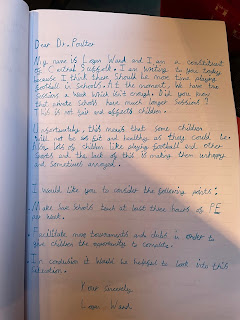 Dear Dr. Poulter
My name is Logan Ward and I am a constituent
of Central Suffolk. I am writing to you today
because I think there should be more time playing
football in schools. At the moment, we have two
sessions a week which isn't enough. Did you know
that private schools have much longer sessions?
This is not fair and affects children.
Unfortunately, this means that some children
will not be as fit and healthy as they could be.
Also lots of children like playing football and other
sports and the lack of this is making them unhappy
and sometimes annoyed.
I would like you to consider the following points:
Make sure schools teach at least three hours of PE
per week.
Facilitate more tournaments and clubs in order to
give children the opportunity to compete.
In conclusion it would be helpful to look into this
situation.
Your sincerely
Logan Ward